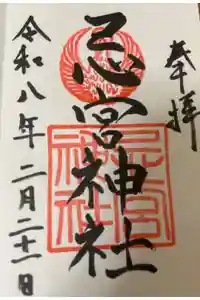 奉拝
忌宮神社
令和八年二月二十一日
忌宮
神社